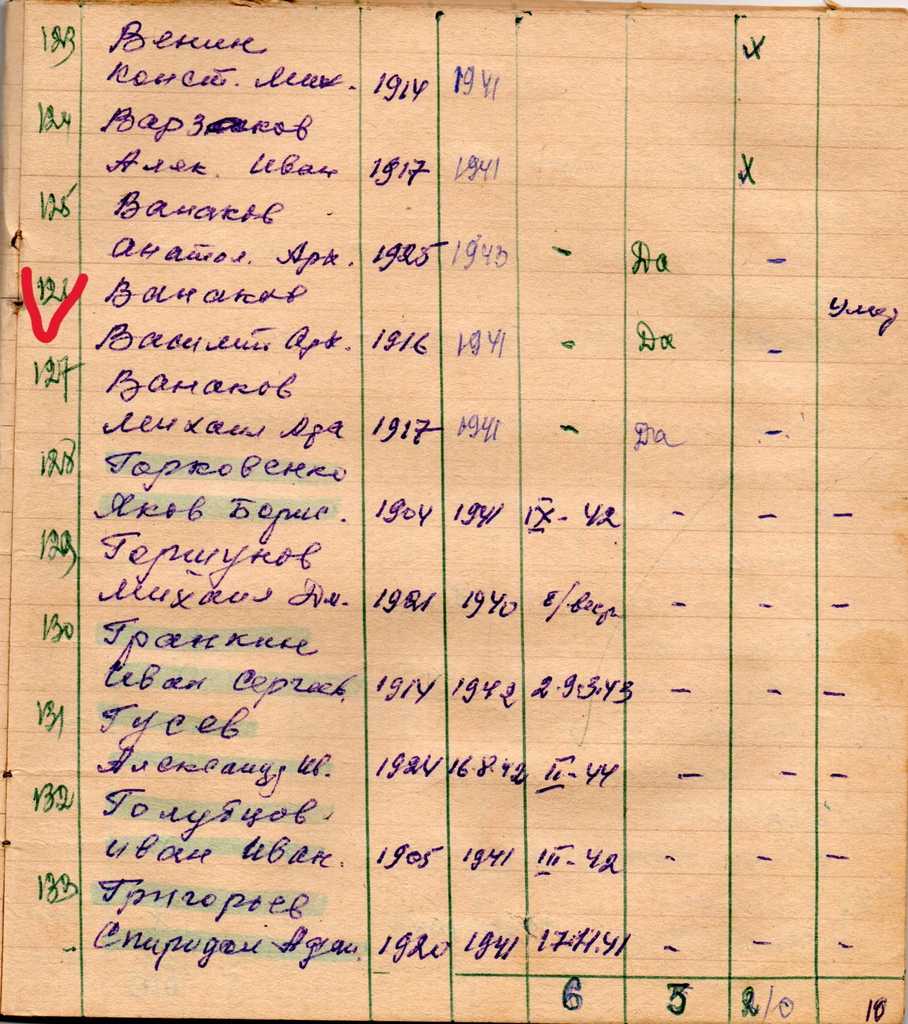 123 Венин х
Конст. Мих. 1914 1941
124 Варзаков
Алек. Иван 1917 1941 х
125 Ванаков
Анатол. Арк. 1925 1943 - Да -
126 Ванаков
Василий Арк. 1916 1941 - Да -
127 Ванаков
Михаил Ада 1917 1941 - Да -
128 Горковенко
Яков Борис. 1904 1941 IX - 42 - - -
129 Горшунов
Михаил Дм. 1921 1940 - - -
130 Гранкин
Иван Сергеев. 1914 1942 2.9.3.43 - - -
131 Гусев
Александр Ив. 1924 16.8.42 II - 44 - - -
132 Голубцов
Иван Иван. 1905 1941 III - 42 - - -
133 Григорьев
1920 1941 17.11.41 - - -
6 3 2/0 10